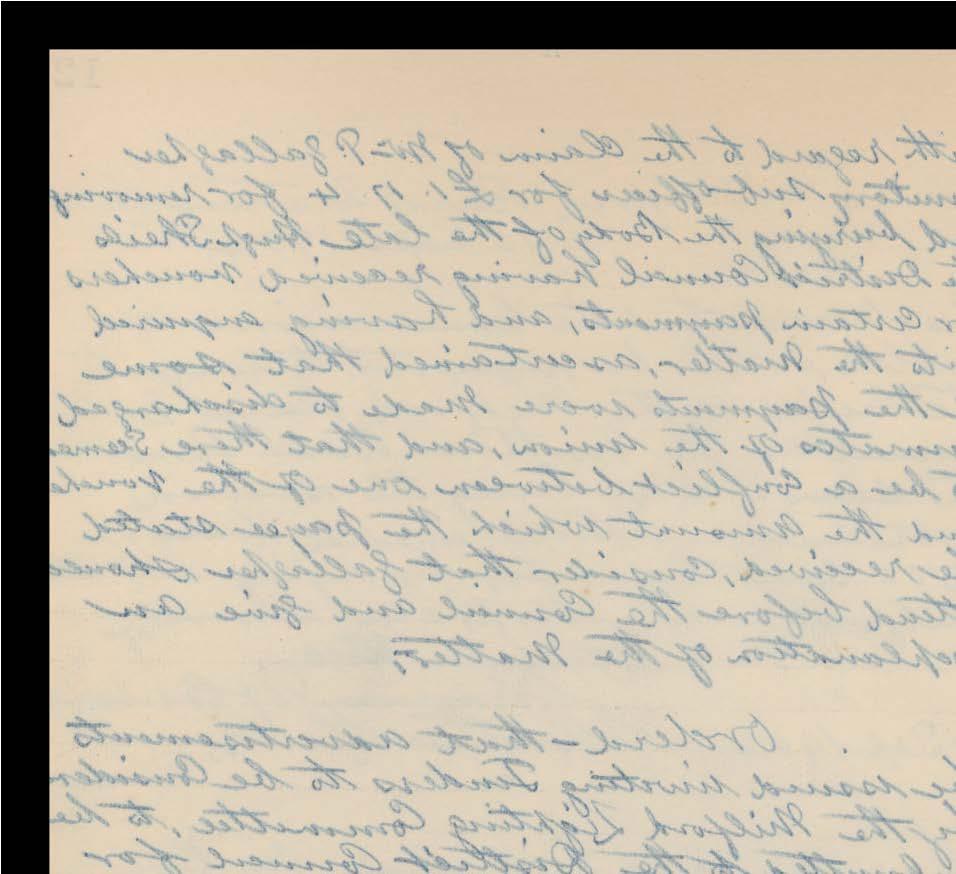 12
th regard to the Claim of Mr P. Gallagher
anitary Sub officer for £1. 17. 4 for removing
d burying the Body of the late Hugh Sheils
e District Council having received vouchers
r certain payments, and having enquired
to the Matter, ascertained that some
the payments were made to discharged
mates of the Union, and that there Seems
to be a Conflict between one of the vouche
nd the amount which the payee stated
e received, Consider that Gallagher should
tend before the Council and give an
explanation of the Matter.
Ordered - that advertisements
be issued inviting Tenders to be Consider
by the Milford Lighting Committee, to be
bmitted to the District Council for